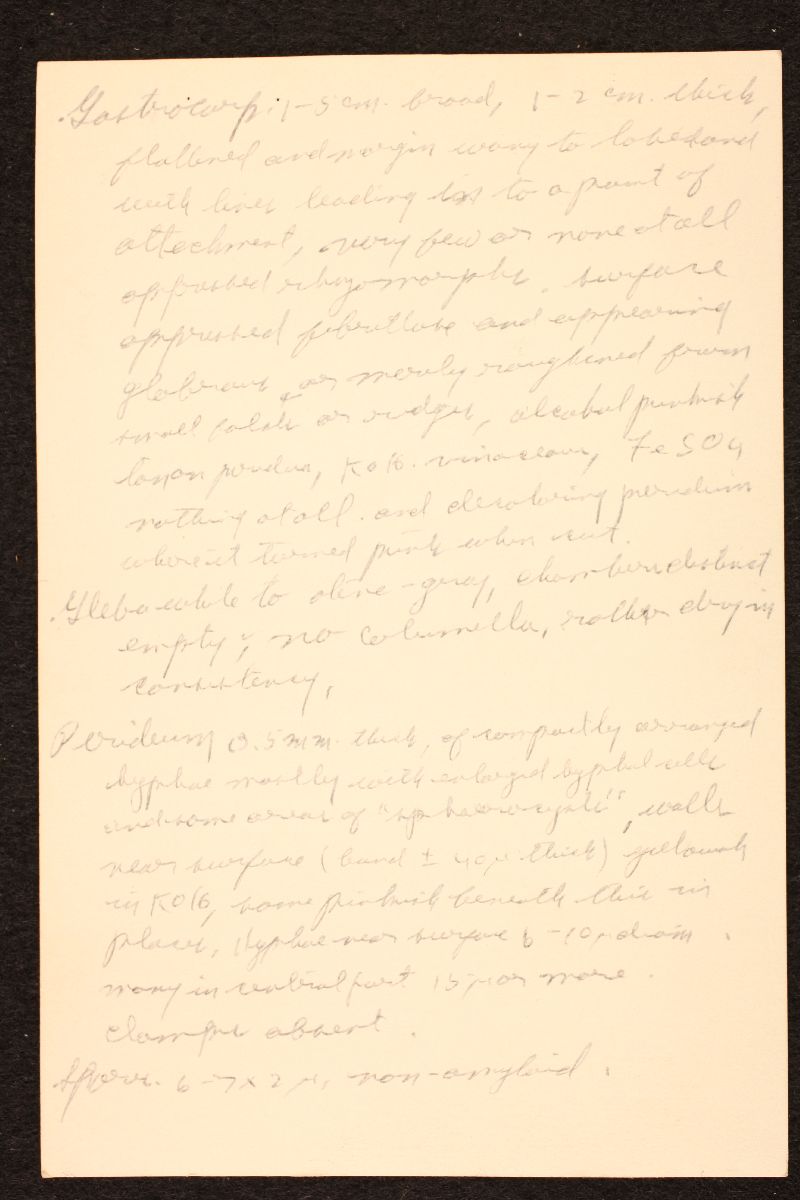 Gastrocarp: 1-5 cm. broad, 1-2 cm. thick,
flattened and margin wavy to lobed and
with lines leading in to a point of
attachment, very few or none at all
appressed rhizomorphs. surface
appressed fibrillose and appearing
glabrous, or merely roughened from
small folds or ridges, alcohol pinkish
on peridium, KOH. vinaceous, FeSO4
nothing at all. and decoloring peridium
where it turned pink when cut.
Gleba white to olive-gray, chambers distinct
empty, no columella, rather dry in
consistency,
Peridium 0.5 mm. thick, of compactly arranged
hyphae mostly with enlarged hyphal cells
and some areas of "sphaerocysts", walls
near surface (band ± 40µ thick) yellowish
in KOH, some pinkish beneath this in
places, Hyphae near surface 6-10µ diam.
many in central part 15µ or more.
clamps absent.
Spores. 6-7 x 2µ, non-amyloid.